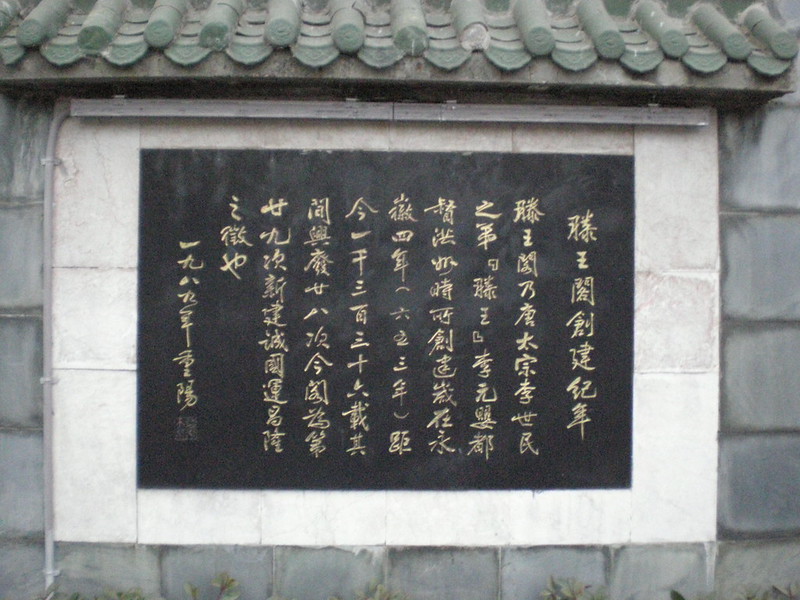 滕王閣創建紀年
滕王閣乃唐太宗李世民
之弟『滕王』李元嬰都
督洪州時所創建歲在永
徽四年（六五三年）距
今一千三百三十六載其
間興廢廿八次今閣為第
廿九次新建誠國運昌隆
之徵也
一九八九年重陽